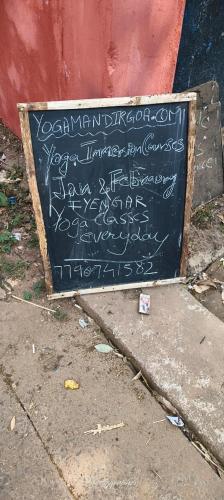 YOGAMANDIRGOA.COM
Yoga Immersion Courses
Jan & February
IYENGAR
Yoga Classes
everyday
7790741582